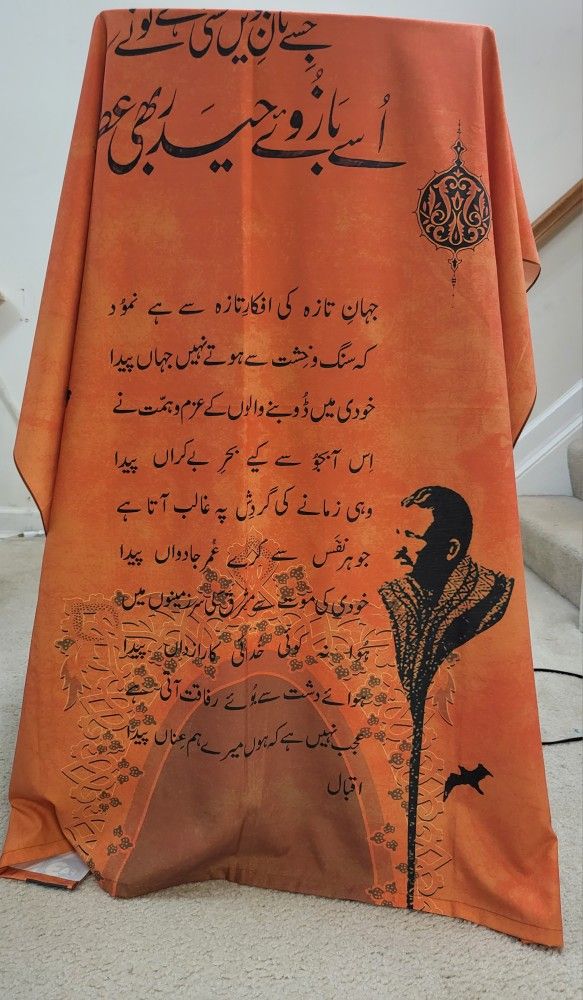 جسے نانِ جویں بخشی ہے تو نے
اُسے بَازُوئے حیدر بھی عط
جہانِ تازہ کی افکارِ تازہ سے ہے نموُد
کہ سنگ و خِشت سے ہوتے نہیں جہاں پیدا
خودی میں ڈُوبنے والوں کے عزم و ہمّت نے
اِس آبجوُ سے کیے بحرِ بے کراں پیدا
وہی زمانے کی گردِش پہ غالب آتا ہے
جو ہر نفَس سے کرے عُمرِ جاوداں پیدا
خودی کی موت سے مشرق کی سرزمینوں میں
ہُوا نہ کوئی خُدائی کا رازداں پیدا
ہوائے دشت سے بُوئے رفاقت آتی ہے
عجب نہیں ہے کہ ہوں میرے ہم عِناں پیدا
اقبال